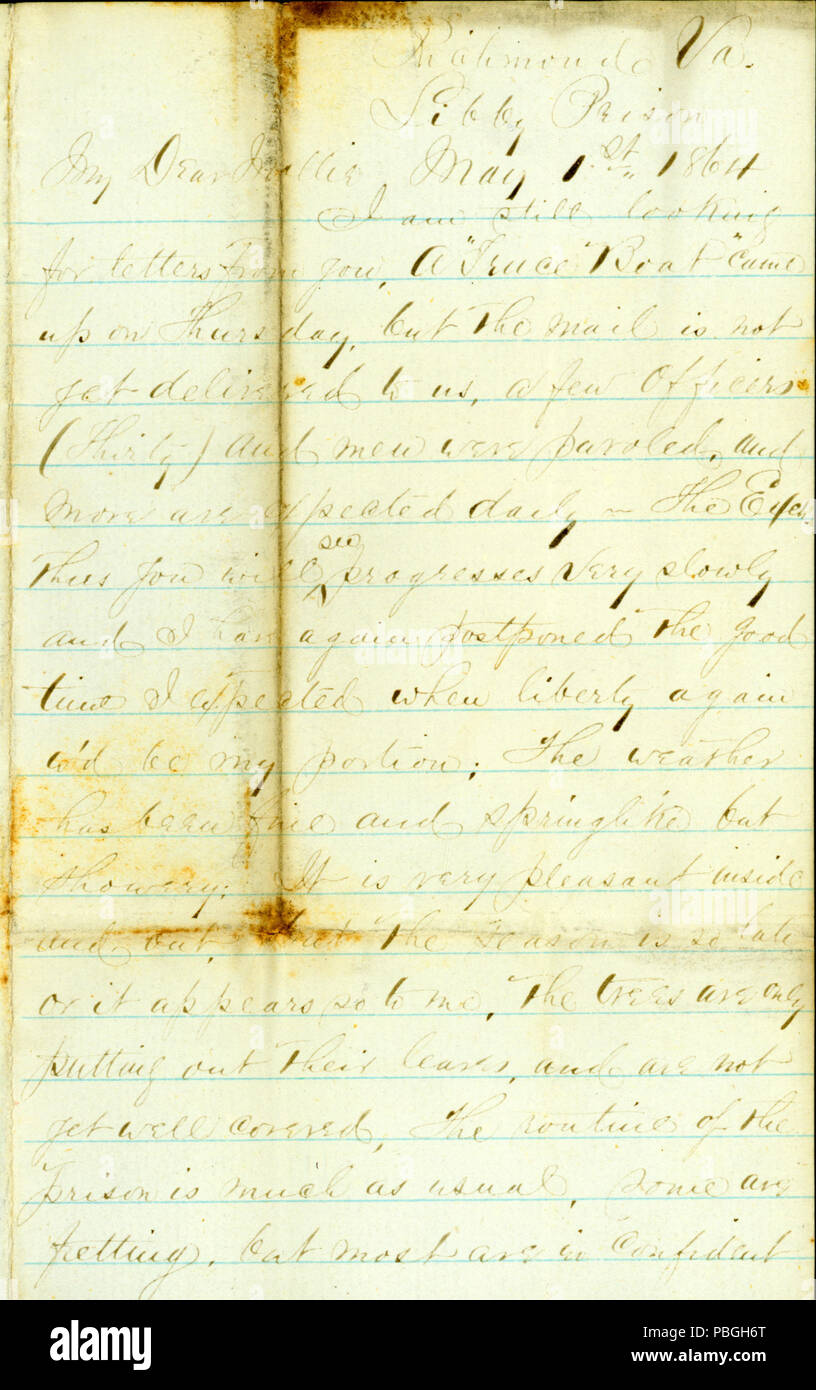 Richmond Va.
Libby Prison
My Dear Mollie May 1st 1864
I am still looking
for letters from you, A "Truce Boat" came
up on Thursday, but the mail is not
yet delivered to us, a few Officers
(Thirty) and men were paroled, and
more are expected daily – The Exch.
thus you will see progresses very slowly
and I have again postponed the good
time I expected when liberty again
w'd be my portion; The weather
has been fine and springlike but
showery; It is very pleasant inside
and out, but the season is so late
or it appears so to me, The trees are only
putting out their leaves, and are not
yet well covered, The routine of the
prison is much as usual, some are
fretting, but most are in confident
alamy
alamy
alamy
alamy
alamy
Image ID: PBGH6T
www.alamy.com